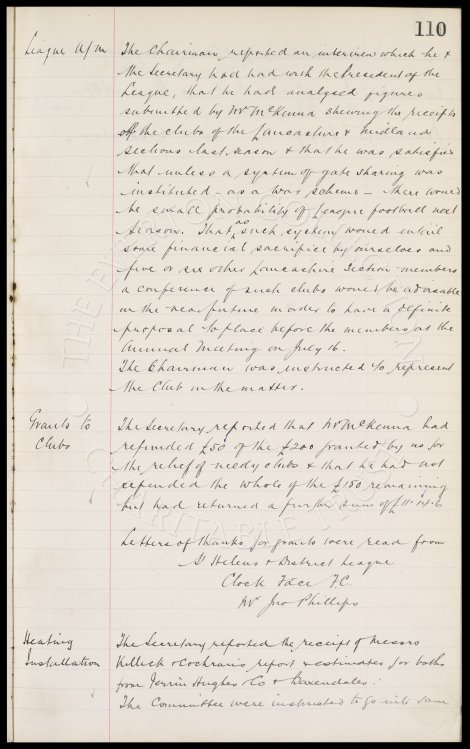 110
League A/m The Chairman reported an interview which he &
the Secretary had had with the President of the
League, that he had analysed figures
submitted by Mr McKenna shewing the receipts
of the clubs of the Lancashire & Midland
sections last season & that he was satisfied
that unless a system of gate sharing was
instituted - as a war scheme - there would
be small probability of League football next
Season. That as such system would entail
some financial sacrifice by ourselves and
five or six other Lancashire Section members
a conference of such clubs would be advisable
in the near future in order to have a definite
proposal to place before the members at the
Annual Meeting on July 16.
The Chairman was instructed to represent
the Club in the matter.
Grants to The Secretary reported that Mr McKenna had
Clubs refunded £50 of the £200 granted by us for
the relief of needy clubs & that he had not
expended the whole of the £150 remaining
but had returned a further sum of £11.14.6
Letters of thanks for grants were read from
St Helens & District League
Clock Face F.C.
Mr Jno Phillips
Heating The Secretary reported the receipt of Messrs
Installation Killick & Cochran's report & estimates for baths
from Ferrin Hughes & Co & Baxendales:
The Committee were instructed to go into same